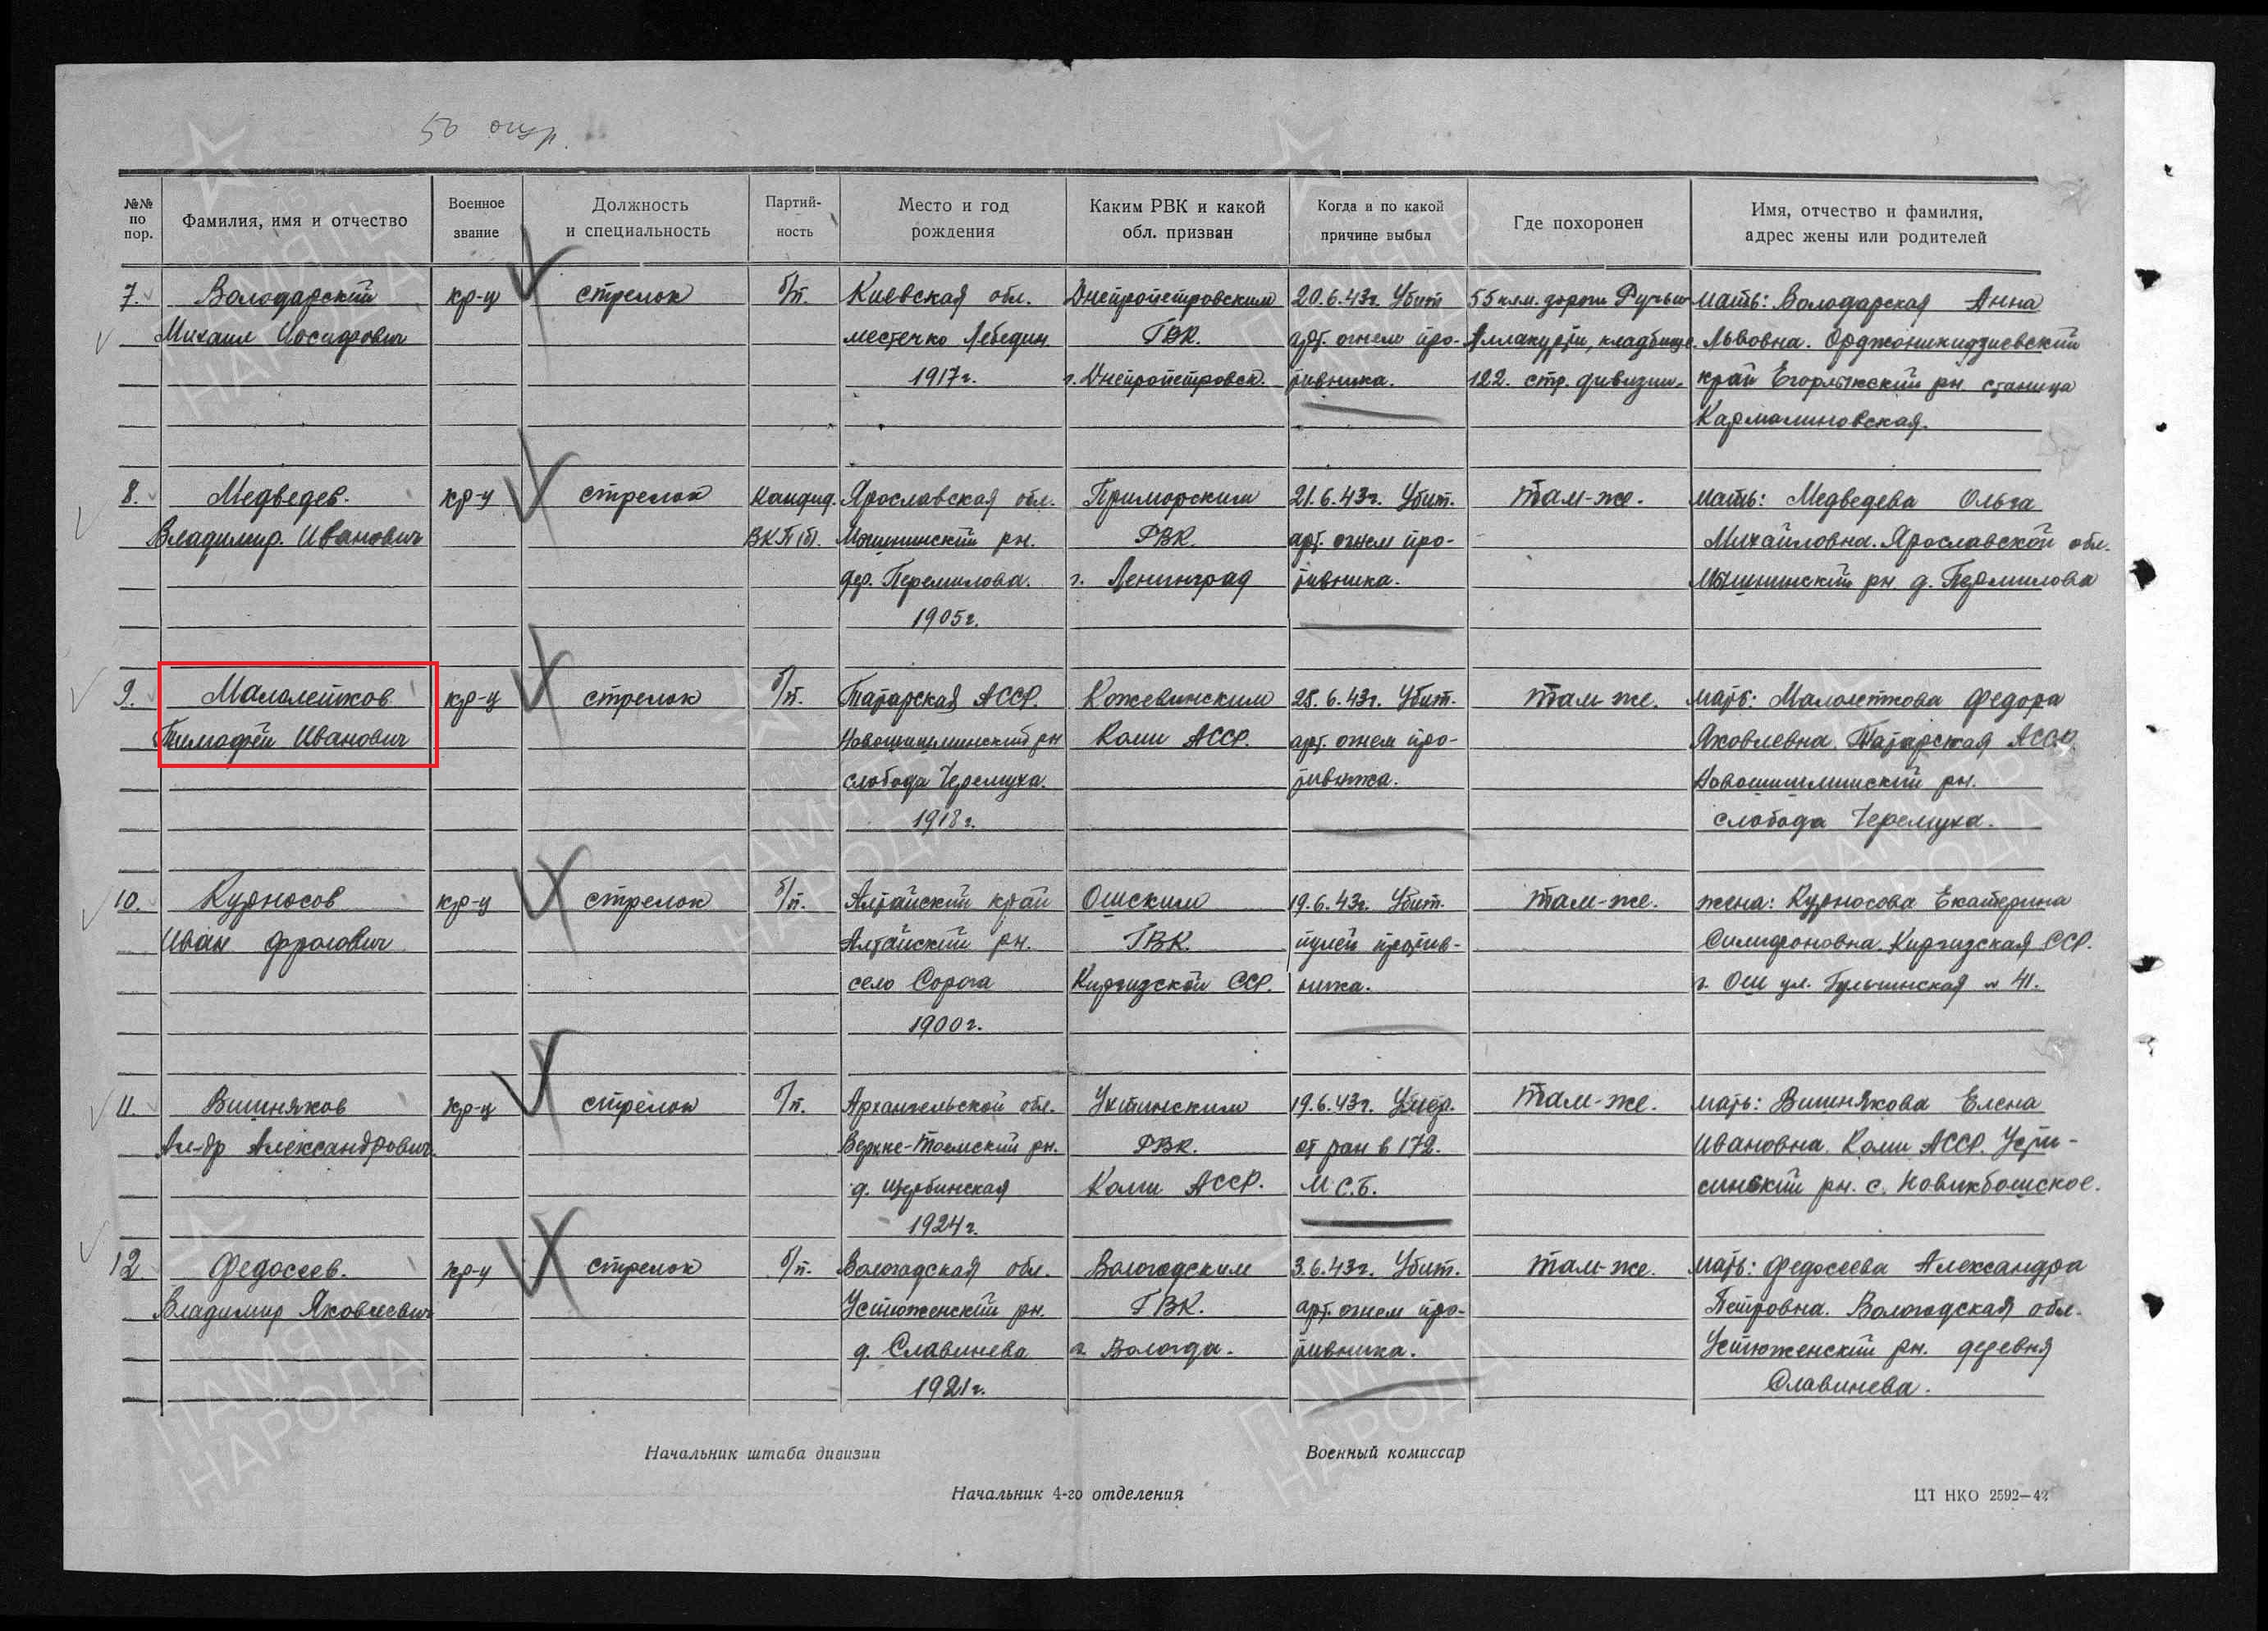 50 огур.
№№ по пор.
Фамилия, имя и отчество
Военное звание
Должность и специальность
Партий-ность
Место и год рождения
Каким РВК и какой обл. призван
Когда и по какой причине выбыл
Где похоронен
Имя, отчество и фамилия, адрес жены или родителей
7. Володарский кр-ц стрелок б/п. Киевская обл. Днепропетровским 20.6.43г. Убит 55 клм. дороги Ручьи мать: Володарская Анна
Михаил Иосифович местечко Лебедин ГВК. арт. огнем про- Аллакурти, кладбище Львовна. Орджоникидзиевский
1917г. г. Днепропетровск. тивника. 122. стр. дивизии. край Егорлыкский рн. станица
Кармалиновская.
8. Медведев. кр-ц стрелок Кандид. Ярославская обл. Приморским 21.6.43г. Убит. там-же. мать: Медведева Ольга
Владимир. Иванович ВКП(б). Мышкинский рн. РВК. арт. огнем про- Михайловна. Ярославской обл.
дер. Перемилова. г. Ленинград тивника. Мышкинский рн. д. Пермилова
1905г.
9. Малолетков кр-ц стрелок б/п. Татарская АССР. Кожевинским 25.6.43г. Убит. там-же. мать: Малолеткова Федора
Тимофей Иванович Новошишминский рн Коми АССР. арт. огнем про- Яковлевна. Татарская АССР.
слобода Черемуха. тивника. Новошишминский рн.
1918г. слобода Черемуха.
10. Курносов кр-ц стрелок б/п. Алтайский край Ошским 19.6.43г. Убит. там-же. жена: Курносова Екатерина
Иван Фролович Алтайский рн. ГВК. пулей против- Симифоновна. Киргизская ССР.
село Сорога Киргизской ССР. ника. г. Ош ул. Гульчинская № 41.
1900г.
11. Вишняков кр-ц стрелок б/п. Архангельской обл. Ухтинским 19.6.43г. Умер. там-же. мать: Вишнякова Елена
Ал-др Александрович. Верхне-Тоемский рн. РВК. от ран в 172. Ивановна. Коми АССР. Усти-
д. Щербинская Коми АССР. М.С.Б. синский рн. с. Новикбошское.
1924г.
12. Федосеев. кр-ц стрелок б/п. Вологодская обл. Вологодским 3.6.43г. Убит. там-же. мать: Федосеева Александра
Владимир Яковлевич Устюженский рн. ГВК. арт. огнем про- Петровна. Вологодская обл.
д. Славинева г. Вологда. тивника. Устюженский рн. деревня
1921г. Славинева.
Начальник штаба дивизии
Военный комиссар
Начальник 4-го отделения
ЦТ НКО 2592—42
ПАМЯТЬ НАРОДА